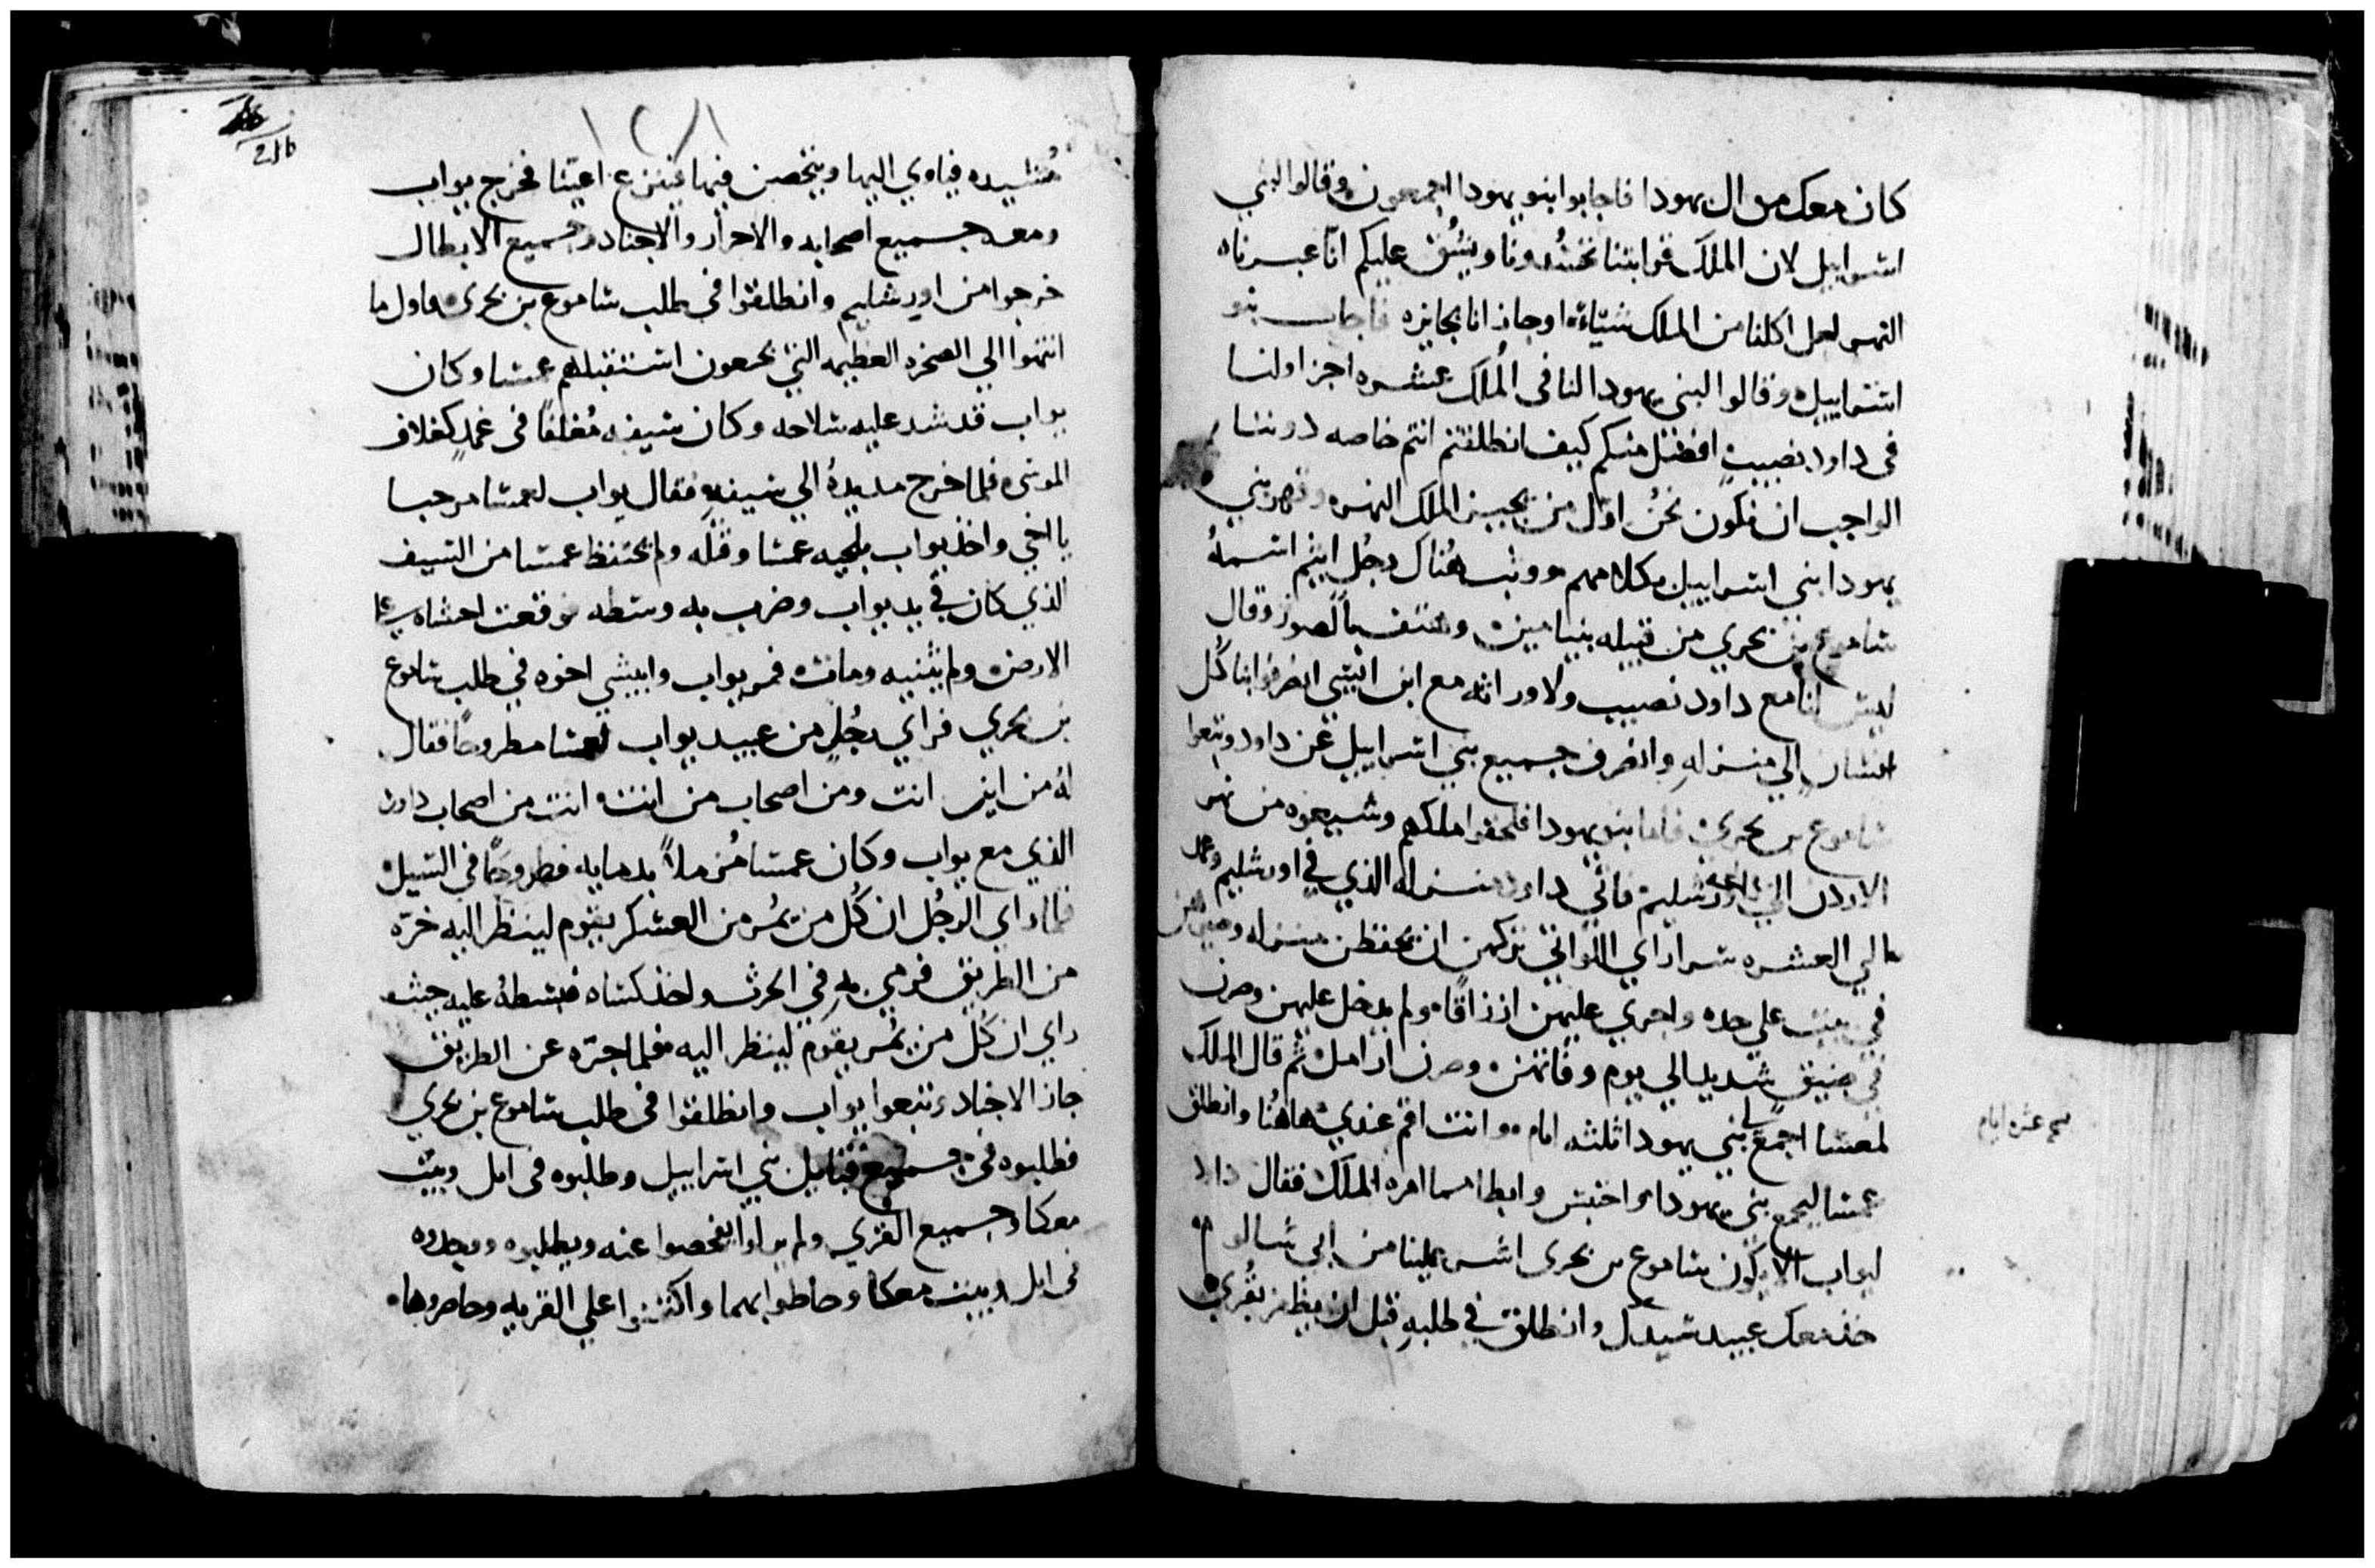 كان معك من ال يهودا فاجابوا بنو يهودا اجمعون وقالوا لبني
اسراييل لان الملك قرابتنا تحسدونا ويشق عليكم انا عبرناه
النهر لعل اكلنا من الملك شياءً او جازانا بجايزه فاجاب بنو
اسراييل وقالوا لبني يهودا لنا في المُلك عشره اجزا ولنا
في داود نصيبٍ افضل منكم كيف انطلقتم انتم خاصه دوننا
الواجب ان نكون نحنُ اول من يجيز الملك النهر وقهر بني
يهودا بني اسراييل بكلامهم ووثب هُناك رجُل اثيم اسمهُ
شاموع بن بحري من قبيله بنيامين وهتف بالصوت وقال
ليس لنا مع داود نصيب ولا وراثه مع ابن ايشي انصرفوا يا كُل
انسان الي منزله وانصرف جميع بني اسراييل عن داود وتبعوا
شاموع بن بحري فاما بنو يهودا فلحقوا ملكهم وشيعوه من نهر
الاردن الي اورشليم فاتي داود منزله الذي في اورشليم وعمد
الي العشره سراراي اللواتي تركهن ان يحفظن منزله
في بيت علي حده واجري عليهن ارزاقًا ولم يدخل عليهن وصرن
في ضيق شديد الي يوم وفاتهن وصرن ارامل ثم قال الملك
لعمشا اجمع لي بني يهودا ثلثه ايام وانت اقم عندي هاهُنا وانطلق
عمشا ليجمع بني يهودا واحتبس وابطا مما امره الملك فقال داود
ليواب الا يكون شاموع بن بحري اشر علينا من ابي شالوم
خذ معك عبيد سيدك وانطلق في طلبه قبل ان يظفر بقُري
مُشيده فياوي اليها ويتحصن فيها فينزع اعيننا فخرج يواب
ومعه جميع اصحابه والاحرار والاجناد وجميع الابطال
خرجوا من اورشليم وانطلقوا في طلب شاموع بن بحري واول ما
انتهوا الي الصخره العظيمه التي بجبعون استقبلهم عمشا وكان
يواب قد شد عليه سلاحه وكان سيفه مُغلفًا في غمدٍ كغلاف
الموسي فلما خرج مد يدهُ الي سيفه فقال يواب لعمشا مرحبا
يا اخي واخذ يواب بلحيه عمشا وقبله ولم يحتفظ عمشا من السيف
الذي كان في يد يواب وضرب به وسطه فوقعت احشاه علي
الارض ولم يثنيه ومات فمر يواب وابيشي اخوه في طلب شاموع
بن بحري فراي رجُل من عبيد يواب لعمشا مطروحًا فقال
لهُ من اين انت ومن اصحاب من انت انت من اصحاب داود
الذي مع يواب وكان عمشا مُزملاً بدمايه مطروحًا في السبيل
فلما راي الرجُل ان كُل من يمُر من العسكر يقوم لينظر اليه جره
من الطريق فرمي به في الحرث واخذ كساه فبسطهُ عليه حيث
راي ان كُل من يمُر يقوم لينظر اليه فلما اجتره عن الطريق
جاز الاجناد وتبعوا يواب وانطلقوا في طلب شاموع بن بحري
فطلبوه في جميع قبايل بني اسراييل وطلبوه في ابل وبيت
معكا وجميع القري ولم يزالوا يفحصوا عنه ويطلبوه ووجدوه
في ابل وبيت معكا وحاطوا بهما واكمنوا علي القريه وحاصروها